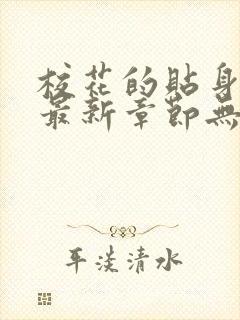 校花的貼身
最新章節無
平淡清水